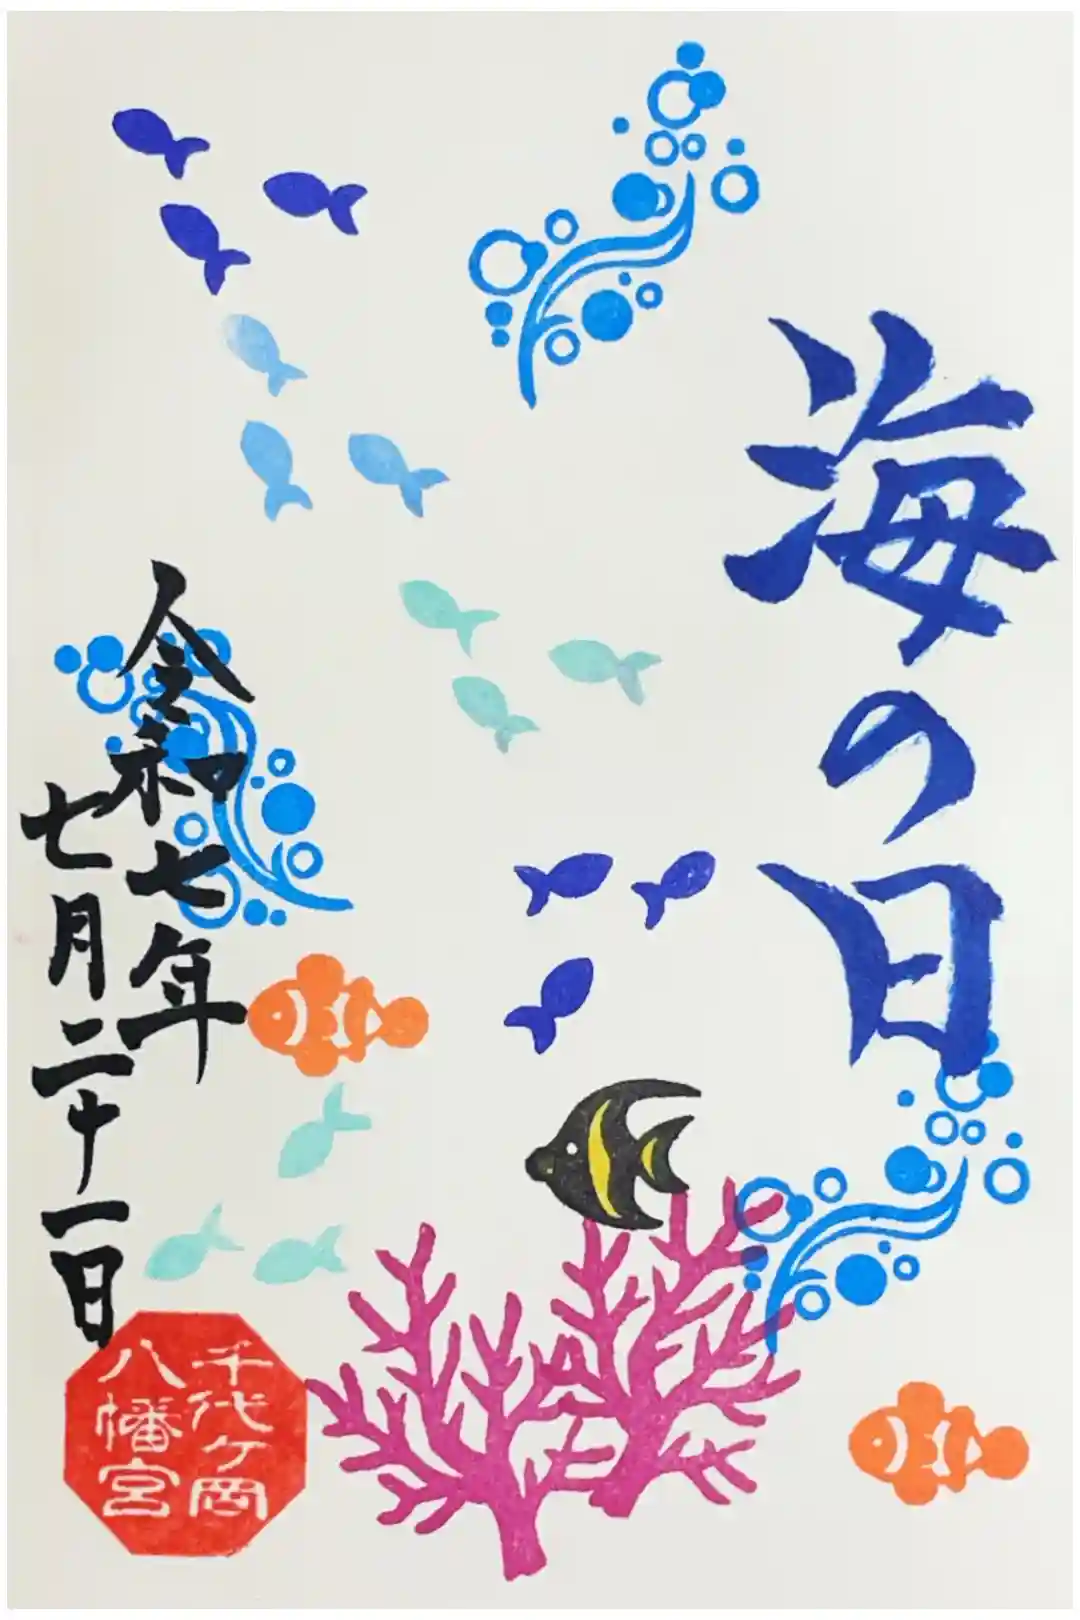 海の日
令和七年
七月二十一日
千代ケ岡
八幡宮